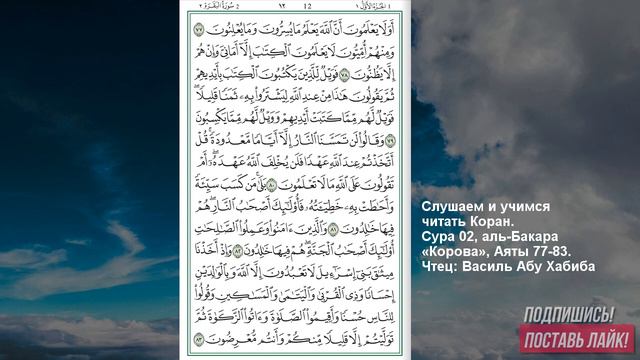 الجزء الأول ١
12
١٢
2 سورة البقرة ٢
أَوَلَا يَعْلَمُونَ أَنَّ ٱللَّهَ يَعْلَمُ مَا يُسِرُّونَ وَمَا يُعْلِنُونَ ٧٧
وَمِنْهُمْ أُمِّيُّونَ لَا يَعْلَمُونَ ٱلْكِتَـٰبَ إِلَّآ أَمَانِيَّ وَإِنْ هُمْ
إِلَّا يَظُنُّونَ ٧٨ فَوَيْلٌ لِّلَّذِينَ يَكْتُبُونَ ٱلْكِتَـٰبَ بِأَيْدِيهِمْ
ثُمَّ يَقُولُونَ هَـٰذَا مِنْ عِندِ ٱللَّهِ لِيَشْتَرُوا۟ بِهِۦ ثَمَنًا قَلِيلًا ۖ
فَوَيْلٌ لَّهُم مِّمَّا كَتَبَتْ أَيْدِيهِمْ وَوَيْلٌ لَّهُم مِّمَّا يَكْسِبُونَ
٧٩ وَقَالُوا۟ لَن تَمَسَّنَا ٱلنَّارُ إِلَّآ أَيَّامًا مَّعْدُودَةً ۚ قُلْ
أَتَّخَذْتُمْ عِندَ ٱللَّهِ عَهْدًا فَلَن يُخْلِفَ ٱللَّهُ عَهْدَهُۥٓ ۖ أَمْ
تَقُولُونَ عَلَى ٱللَّهِ مَا لَا تَعْلَمُونَ ٨٠ بَلَىٰ مَن كَسَبَ سَيِّئَةً
وَأَحَـٰطَتْ بِهِۦ خَطِيٓـَٔتُهُۥ فَأُو۟لَـٰٓئِكَ أَصْحَـٰبُ ٱلنَّارِ ۖ هُمْ
فِيهَا خَـٰلِدُونَ ٨١ وَٱلَّذِينَ ءَامَنُوا۟ وَعَمِلُوا۟ ٱلصَّـٰلِحَـٰتِ
أُو۟لَـٰٓئِكَ أَصْحَـٰبُ ٱلْجَنَّةِ ۖ هُمْ فِيهَا خَـٰلِدُونَ ٨٢ وَإِذْ أَخَذْنَا
مِيثَـٰقَ بَنِىٓ إِسْرَٰٓءِيلَ لَا تَعْبُدُونَ إِلَّا ٱللَّهَ وَبِٱلْوَٰلِدَيْنِ
إِحْسَانًا وَذِى ٱلْقُرْبَىٰ وَٱلْيَتَـٰمَىٰ وَٱلْمَسَـٰكِينِ وَقُولُوا۟
لِلنَّاسِ حُسْنًا وَأَقِيمُوا۟ ٱلصَّلَوٰةَ وَءَاتُوا۟ ٱلزَّكَوٰةَ ثُمَّ
تَوَلَّيْتُمْ إِلَّا قَلِيلًا مِّنكُمْ وَأَنتُم مُّعْرِضُونَ ٨٣
Слушаем и учимся
читать Коран.
Сура 02, аль-Бакара
«Корова», Аяты 77-83.
Чтец: Василь Абу Хабиба
ПОДПИШИСЬ!
ПОСТАВЬ ЛАЙК!